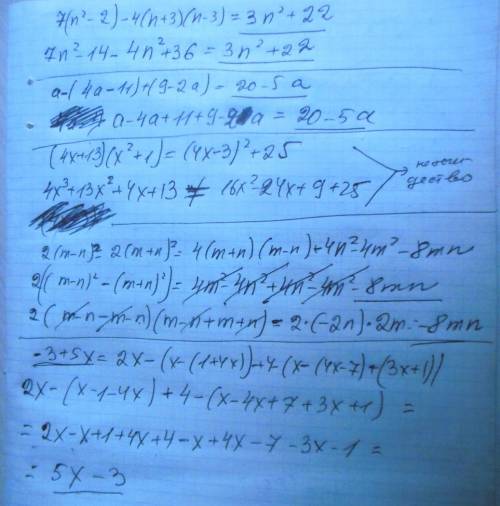 7(n²-2)-4(n+3)(n-3)=3n²+22
7n²-14-4n²+36=3n²+22
a-(4a-11)+(9-2a)=20-5a
a-4a+11+9-2a=20-5a
(4x+13)(x²+1)=(4x-3)²+25
4x³+13x²+4x+13≠16x²-24x+9+25
дество
2(m-n)²-2(m+n)²=4(m+n)(m-n)+4n²-4m²-8mn
2((m-n)²-(m+n)²)=4m²-4n²+4n²-4m²-8mn
2(m-n-m-n)(m-n+m+n)=2·(-2n)·2m=-8mn
-3+5x=2x-(x-(1+4x))+4-(x-(4x-7)+(3x+1))
2x-(x-1-4x)+4-(x-4x+7+3x+1)=
=2x-x+1+4x+4-x+4x-7-3x-1=
=5x-3